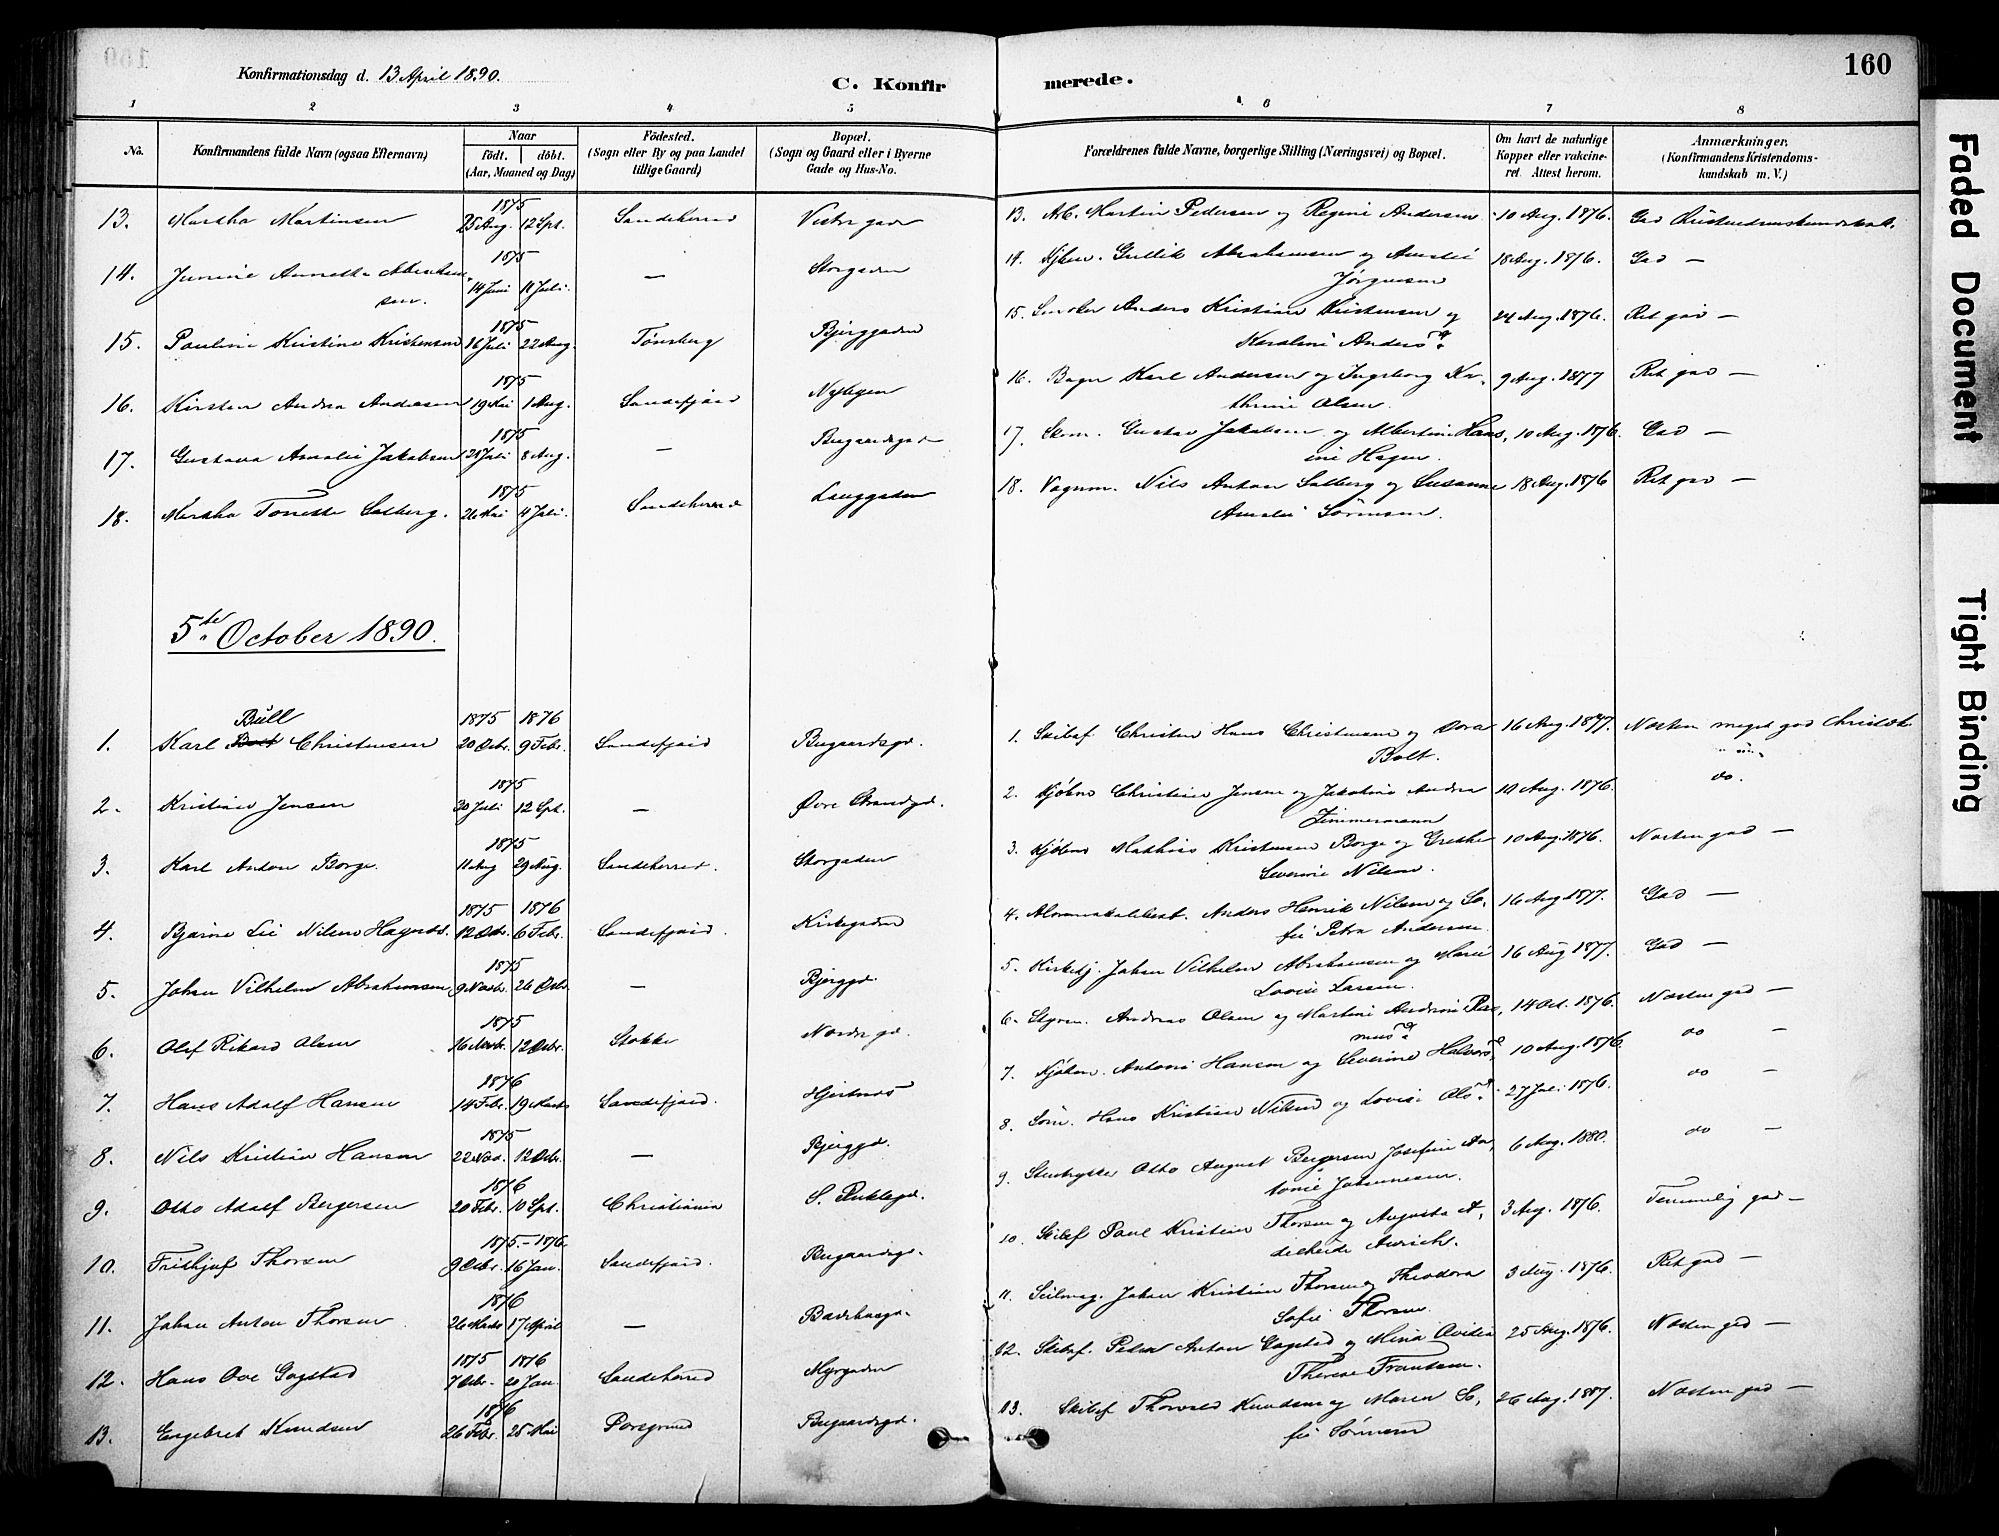 160
Konfirmationsdag d. 13 April 1890.
C. Konfirmerede.
1 2 3 4 5 6 7 8
No. Konfirmandens fulde Navn (ogsaa Efternavn) Naar födt. döbt. (Aar, Maaned og Dag) Födested. (Sogn eller By og paa Landet tillige Gaard) Bopæl. (Sogn og Gaard eller i Byerne Gade og Hus-No. Forældrenes fulde Navne, borgerlige Stilling (Næringsvei) og Bopæl. Om havt de naturlige Kopper eller vakcineret. Attest herom. Anmærkninger. (Konfirmandens Kristendomskundskab m. V.)
13. Martha Martinsen 1875 25 Aug. 12 Spt. Sandeherred Vestre gade 13. Martin Pedersen og Regine Andersen 10 Aug. 1876. God Kristendomskundskab.
14. Annette Abrahamsen. 1875 14 Juni 11 Juli. — Storgaden 14. Gullik Abrahamsen og Amalie Jørgensen 18 Aug. 1876. God —
15. Pauline Kristine Kristensen 1875 16 Juli 22 Aug. Tønsberg Bjerggaden 15. Anders Kristian Kristensen og Karoline Anders 24 Aug. 1876. Ret god —
16. Kirsten Andrea Andersen 1875 19 Mai 1 Aug. Sandefjord 16. Bager Karl Andersen og Ingeborg Kathrine Olsen. 9 Aug. 1877 Ret god —
17. Gustava Amalie Jakobsen 1875 28 Juli 8 Aug. — Bugaardsgade 17. Gustav Jakobsen og Albertine Hansine Hagen. 10 Aug. 1876. God —
18. Martha Tonette Solberg. 1875 26 Mai 4 Juli. Sandeherred Langgaden 18. Vognm. Nils Anton Solberg og Susanne Amalie Sørensen. 18 Aug. 1876 Ret god —
5te October 1890.
Bull
1. Karl Christensen 1875 20 Debr. 1876 9 Febr. Sandefjord Bugaardsgd. 1. Skibsf. Christen Hans Christensen og Dora Bolt. 16 Aug. 1877. Næsten meget god
2. Kristian Jensen 1875 30 Juli 12 Spt. — Øvre Strandgd. 2. Kjøbm. Christian Jensen og Jakobine Andrea Zimmermann 10 Aug. 1876. do.
3. Karl Anton Borge. 1875 11 Aug 29 Aug. Sandeherred. Storgaden 3. Kjøbm. Mathias Kristensen Borge og Grethe Severine Nilsen. 10 Aug. 1876. Næsten god —
4. Bjarne Lie Nilsen 1875 12 1876 6 Febr. Sandefjord. Kirkegaden 4. Anders Henrik Nilsen og Sofie Petra Andersen 16 Aug 1877. God —
5. Johan Vilhelm Abrahamsen 1875 9 Novbr. 26 Debr. — Bjerggd. 5. Johan Vilhelm Abrahamsen og Marie Lovise Larsen. 16 Aug 1877. God —
6. Olaf Rikard Olsen 1875 16 Novbr. 12 Debr. Stokke Nordre gd. 6. Styrm. Andreas Olsen og Martine Andrine Rasmus 14 Oct. 1876. Næsten god —
7. Hans Adolf Hansen 1876 14 Febr. 19 Marts Sandefjord. Hjertnes 7. Kjøbm. Anton Hansen og Severine Halvors 10 Aug. 1876. do —
8. Nils Kristian Hansen 1875 22 Nov. 12 Debr. — Bjerggd. 8. Søm. Hans Kristian Nilsen og Lovise Ols 27 Jul. 1876. do —
9. Otto Adolf Bergersen 1876 20 Febr. 10 Spt. Christiania S. 9. Otto August Bergersen Josefine Antonie Johannesen. 6 Aug. 1880. do —
10. Frithjof Thorsen 1875.-1876. 9 Debr. 16 Jan. Sandefjord. Bugaardsgd. 10. Skibsf Paul Kristian Thorsen og Augusta Adelheide 3 Aug. 1876. Temmelig god —
11. Johan Anton Thorsen 1876 26 Marts 17 April — 11. Seilmag. Johan Kristian Thorsen og Theodora Sofie Thorsen. 3 Aug. 1876. Ret god —
12. Hans Ove Gogstad 1875 7 Debr. 1876 20 Jan. Sandeherred Myrgaden 12. Skibsf. Peter Anton Gogstad og Mina Ovidia Therese Frantsen. 25 Aug. 1876. Næsten god —
13. Engebret Knudsen 1876 26 Febr. 25 Mai Porsgrund Bugaardsgd. 13. Skibsf Thorvald Knudsen og Maren Sofie Sørensen 26 Aug. 1887. Næsten god —
Faded Document
Tight Binding